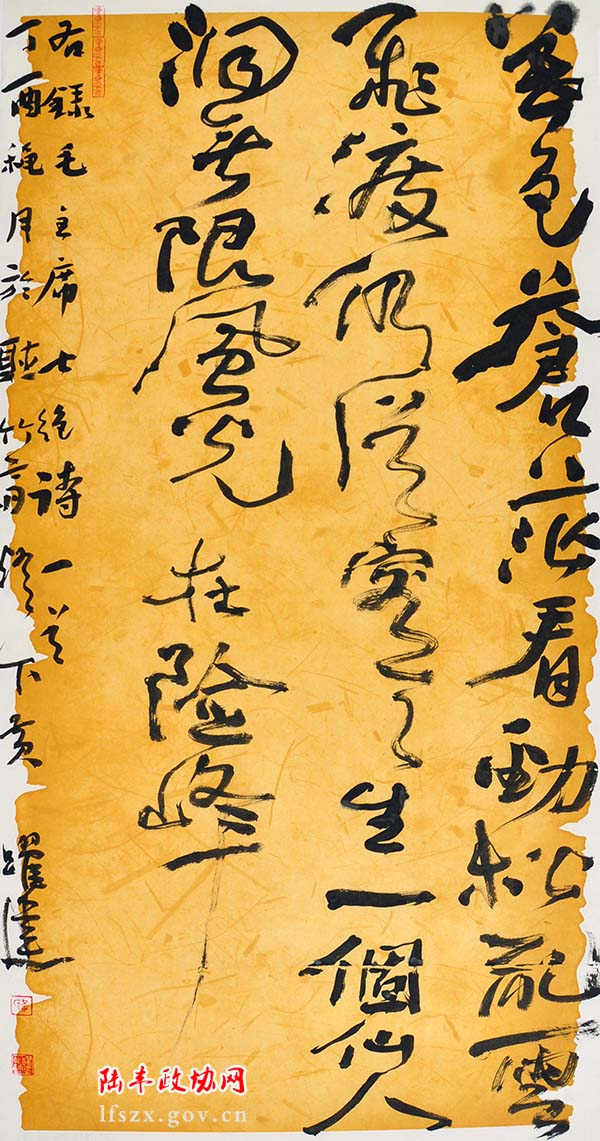 暮色蒼茫看勁松亂雲
飛渡仍從容天生一個仙人
洞無限風光在險峰
右錄毛主席七絕詩一首
丁酉秋月於聽竹齋燈下黃躍達
陆丰政协网
lfszx.gov.cn